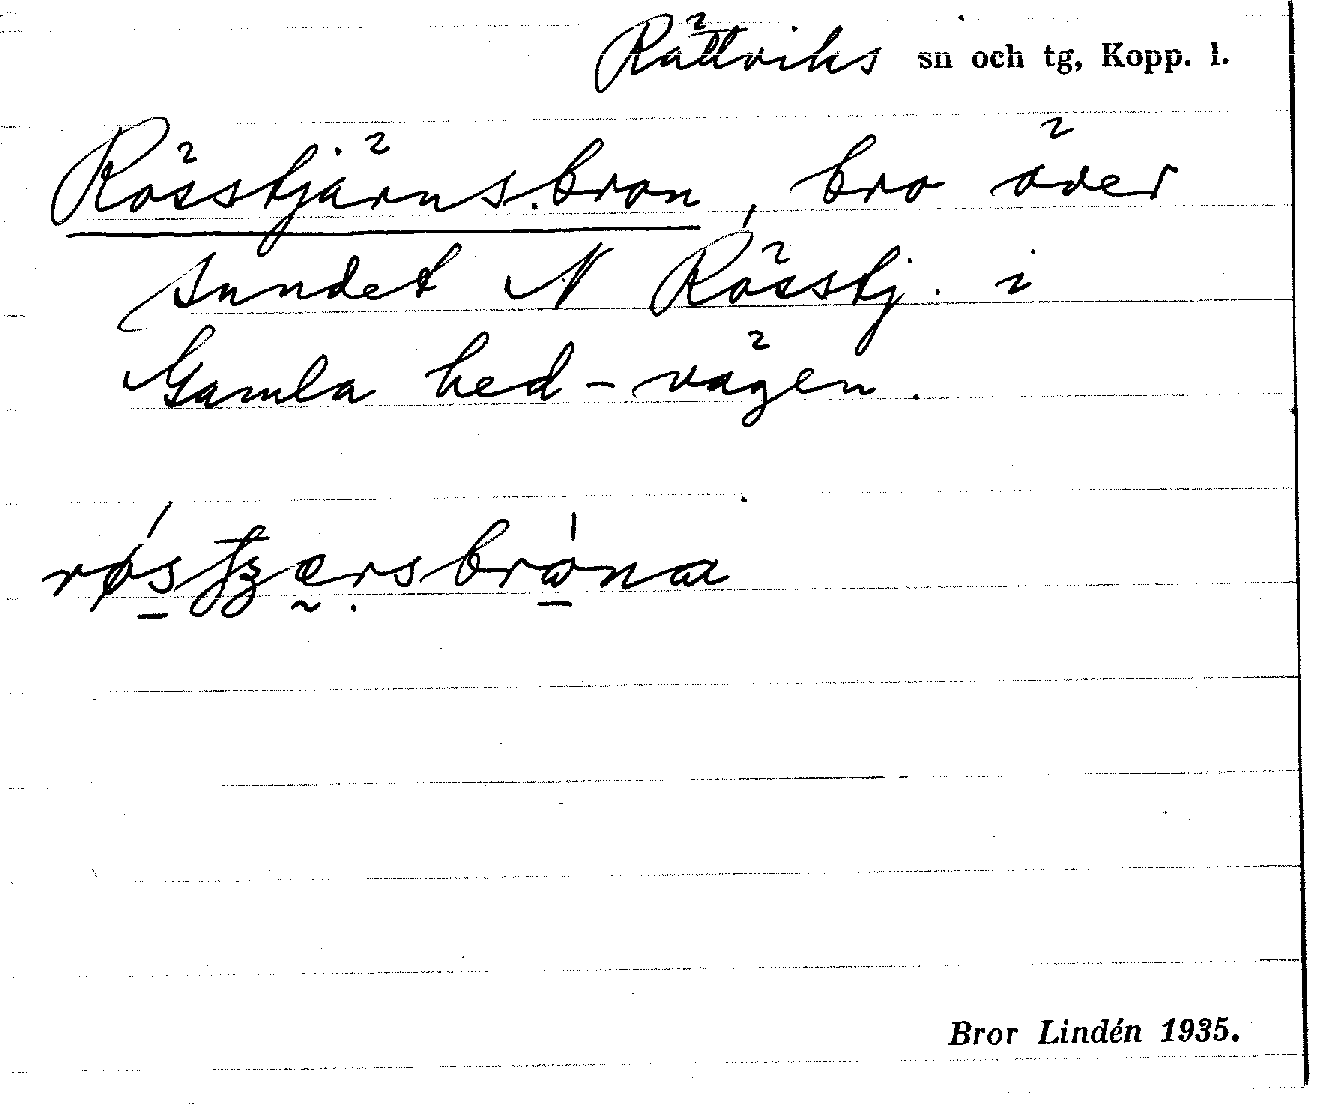 Rättviks sn och tg, Kopp. l.
Rösstjärnsbron, bro över
sundet N Rösstj. i
Gamla hed-vägen.
Bror Lindén 1935.